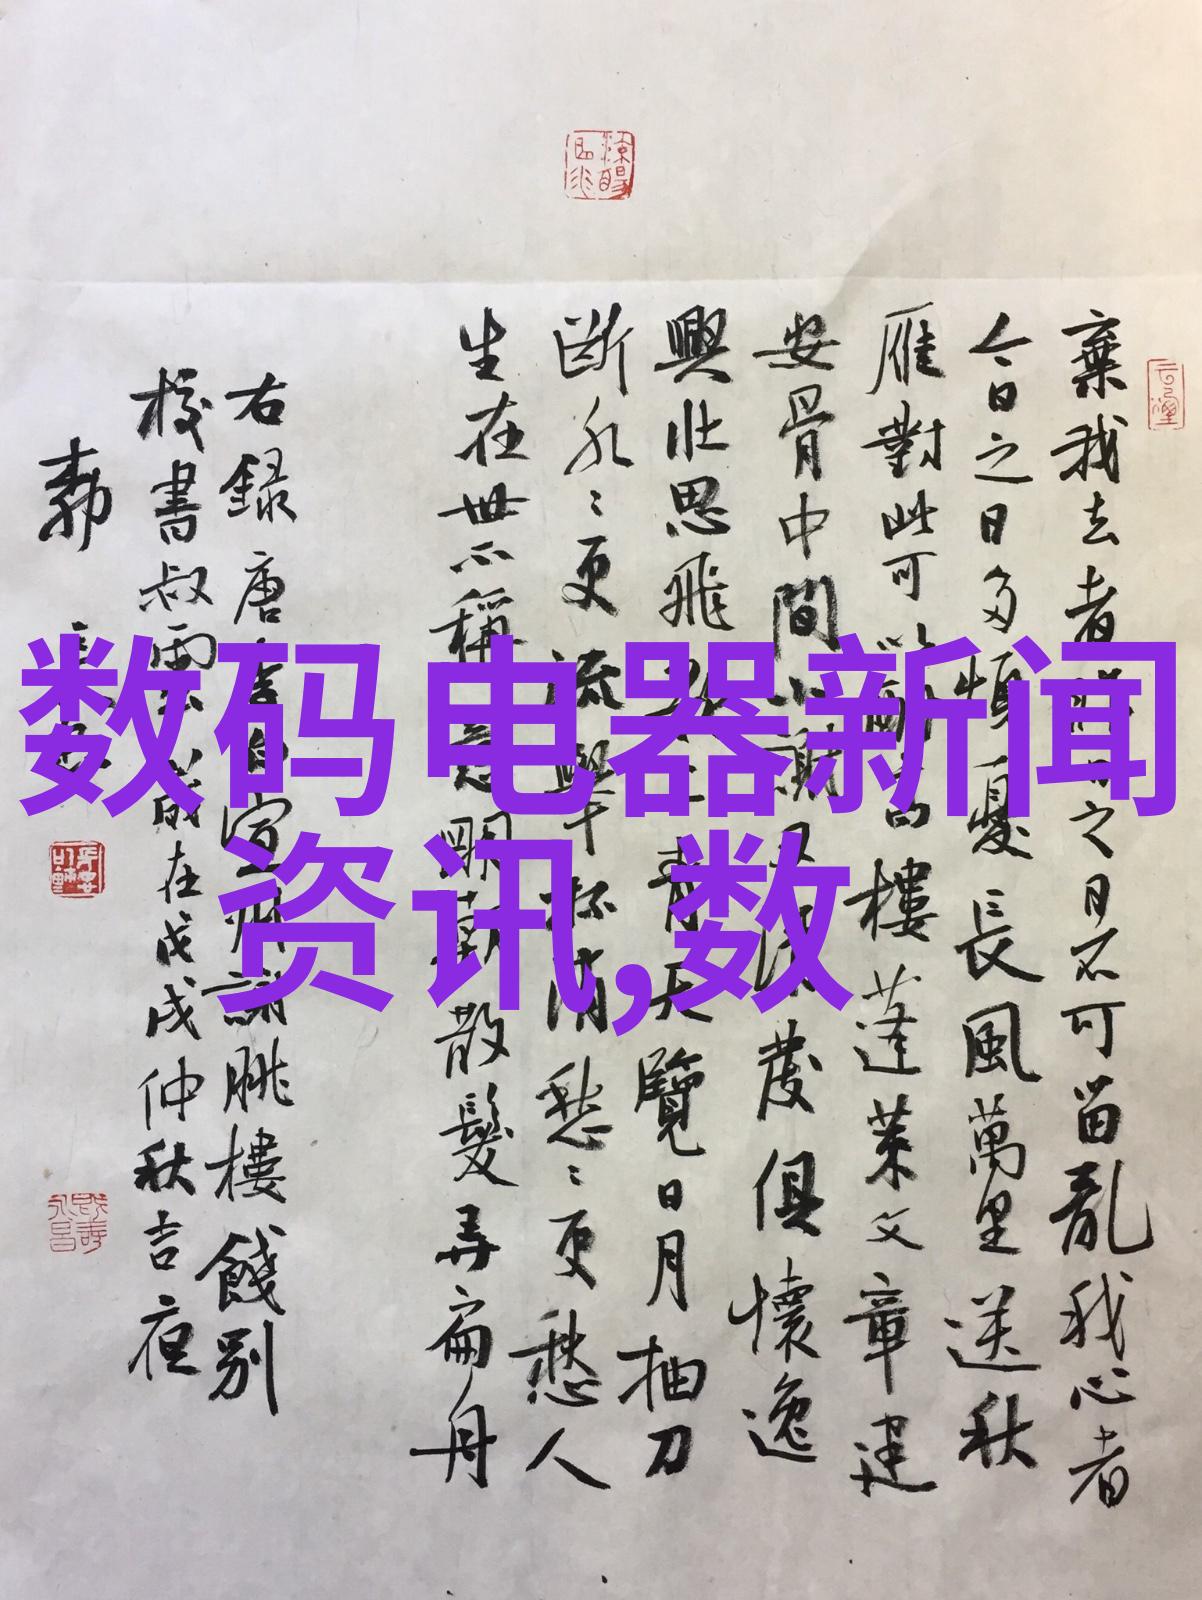 数码电器新闻
资讯,数
棄我去者昨日之日不可留亂我心者
今日之日多煩憂長風萬里送秋
雁對此可以酣高樓蓬萊文章建
安骨中間小謝又清發俱懷逸
興壯思飛欲上青天覽日月抽刀
斷水〻更流舉杯消愁〻更愁人
生在世不稱意明朝散髮弄扁舟
右録唐李白宣州謝朓樓餞別
校書叔雲歲在戊戌仲秋吉夜